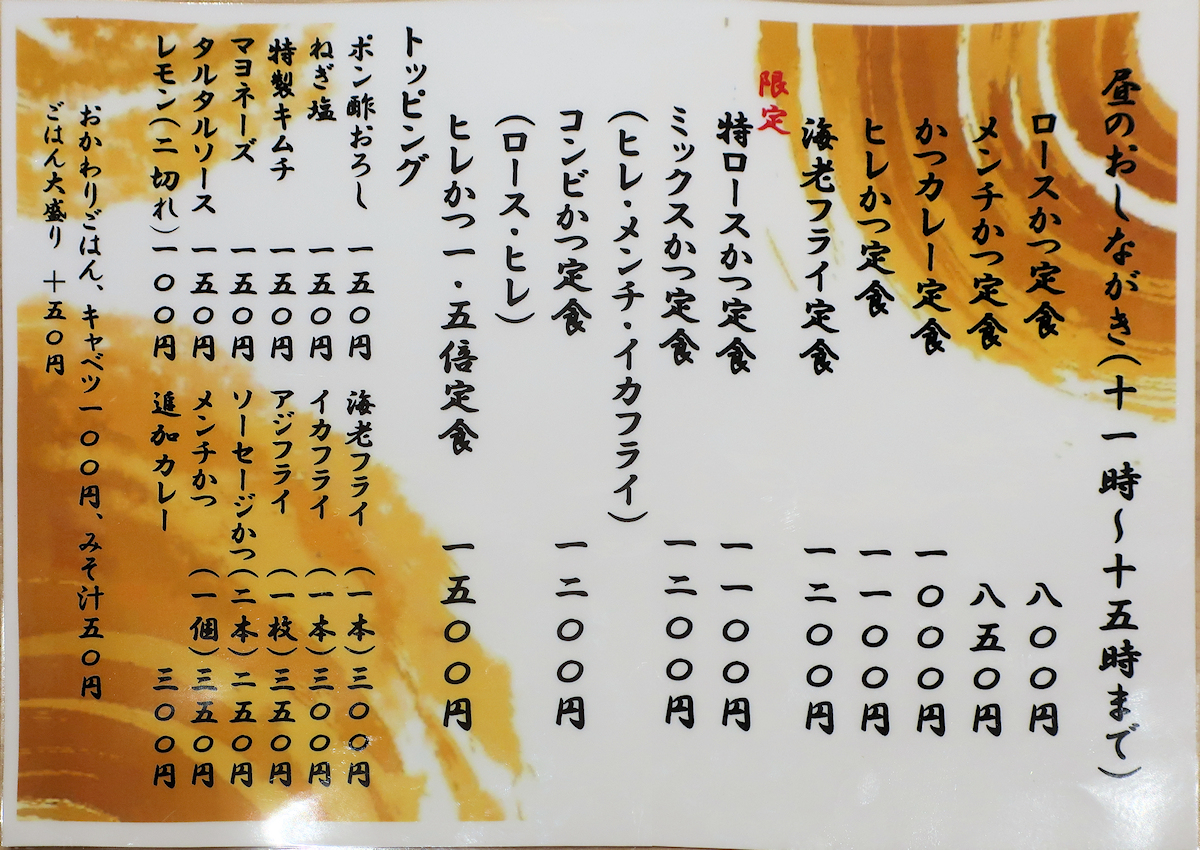 昼のおしながき(十一時〜十五時まで)
ロースかつ定食 八〇〇円
メンチかつ定食 八五〇円
かつカレー定食 一〇〇〇円
ヒレかつ定食 一一〇〇円
海老フライ定食 一二〇〇円
限定
特ロースかつ定食 一一〇〇円
ミックスかつ定食 一二〇〇円
(ヒレ・メンチ・イカフライ)
コンビかつ定食 一二〇〇円
(ロース・ヒレ)
ヒレかつ一・五倍定食 一五〇〇円
トッピング
ポン酢おろし 一五〇円 海老フライ(一本)三〇〇円
ねぎ塩 一五〇円 イカフライ(一本)三〇〇円
特製キムチ 一五〇円 アジフライ(一枚)三五〇円
マヨネーズ 一五〇円 ソーセージかつ(二本)二五〇円
タルタルソース 一五〇円 メンチかつ(一個)三五〇円
レモン(二切れ)一〇〇円 追加カレー 三〇〇円
おかわりごはん、キャベツ一〇〇円、みそ汁五〇円
ごはん大盛り +五〇円